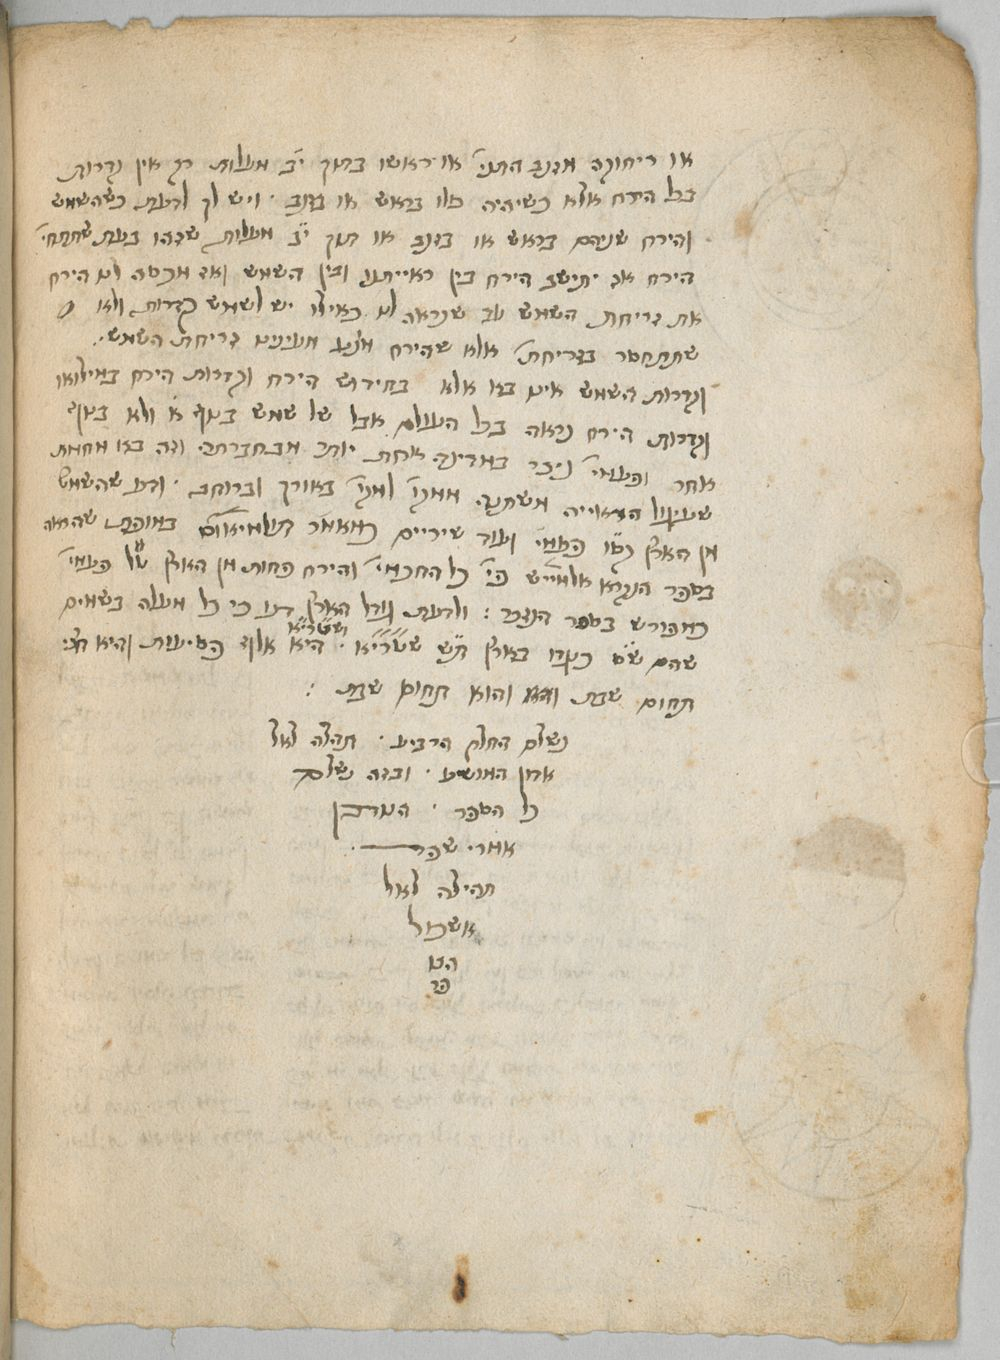 או ריחוקה מזנב התני או ראשו בתוך י״ב מעלות רק אין קדרות
בכל הירח אלא כשיהיה כולו בראש או בזנב · ויש לך לדעת כשהשמש
והירח שניהם בראש או בזנב או תוך י״ב מעלות שבהו בעת שתתחי
הירח אז יתישב הירח בין ראייתנו ובין השמש ואז מכסה לנו הירח
את זריחת השמש עד שנראה לנו כאילו יש לשמש קדרות ולא
שתתחסר בזריחתו אלא שהירח מונע מעינינו זריחת השמש
וקדרות השמש אינו בא אלא בחידוש הירח וקדרות הירח במילואו
וקדרות הירח נראה בכל העולם אבל של שמש בנוף א׳ ולא בנוף
אחר ופעמי׳ ניכר במדינה אחת יותר מבחברתה וזה בא מחמת
שעיגול הראייה משתנה ממקו׳ למקו׳ באורך וברוחב · ודע שהשמש
מן הארץ קס״ו פעמי׳ ועוד שיריים כמאמר תולמיאוס במופת שהראה
בספר הנקרא אלמגיש פי׳ כל החכמי׳ והירח פחות מן הארץ ל״ט פעמי׳
כמפורש בספר הנזכר : ולדעת גודל הארץ דע כי כל מעלה בשמים
שהם ש״ס כנגדו בארץ
תחום שבת והוא תחום שבת :
נשלם החלק הרביעי · תהלה לאל
אדון המושיע · ובזה נשלם
כל הספר ·
אמרי שפר
תהילה לאל
אשכול
הכ
פר